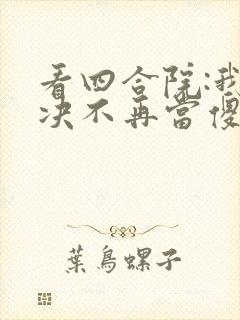 看四合院:我
决不再當傻
葉鳥螺子